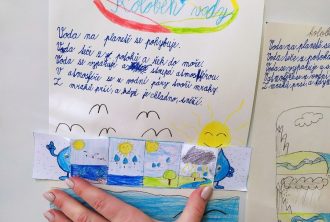 Koloběh vody
Voda na planetě se pohybuje.
Voda teče z potoků a řek do moře.
Voda se vypařuje a stoupá atmosférou.
V atmosféře se z vodní páry tvoří mraky.
Z mraků prší a
Koloběh
Voda na planetě se
Voda teče z potoků a
Voda se vypařuje a
V atmosféře se z vodní
Z mraků prší a